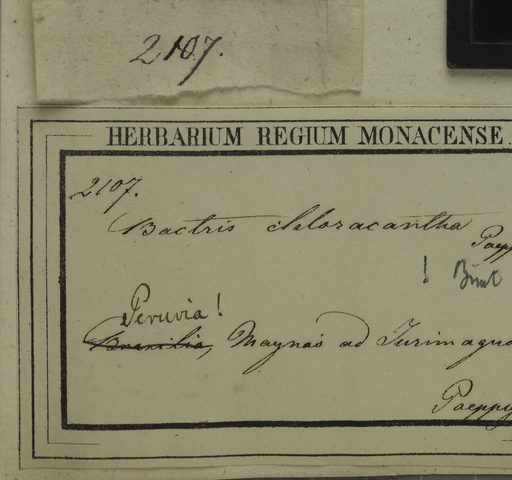 2107.
HERBARIUM REGIUM MONACENSE.
2107.
Bactris chloracantha
Poepp
!
Peruvia!
Brasilia, Maynas ad Jurimagua
Poeppig